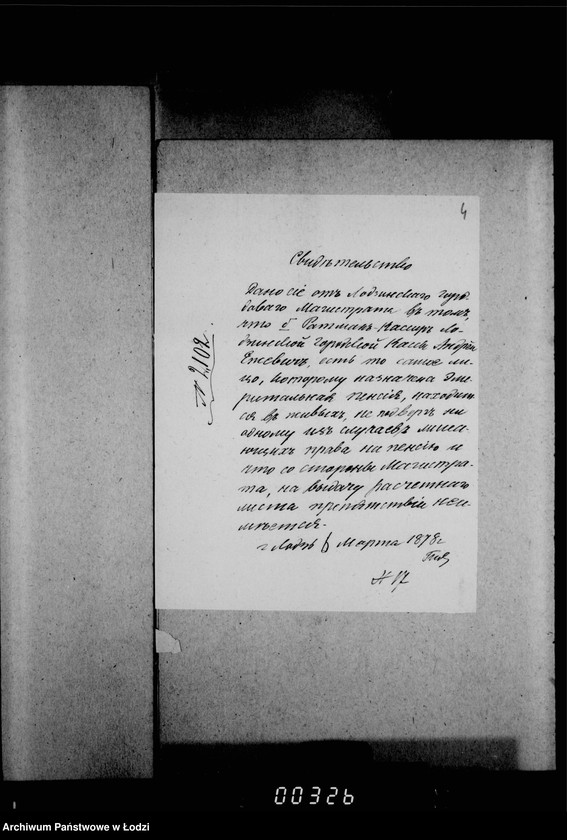 4
Свидѣтельство
Дано сіе отъ Лодзинскаго Горо
доваго Магистрата въ томъ,
что б. Ратманъ-Кассиръ Ло
дзинской Городской Кассы Андрей
есть то самое ли
цо, которому назначена Эме
ритальная пенсія, находит
ся въ живыхъ, не подвергъ ни
одному изъ случаевъ лиша
ющихъ права на пенсію и
что со стороны Магистра
та, на выдачу расчетнаго
листа препятствій неи
мѣется.
г. Лодзь 6 Марта 1878 г
№ 17
№ 2102.
00326
Archiwum Państwowe w Łodzi